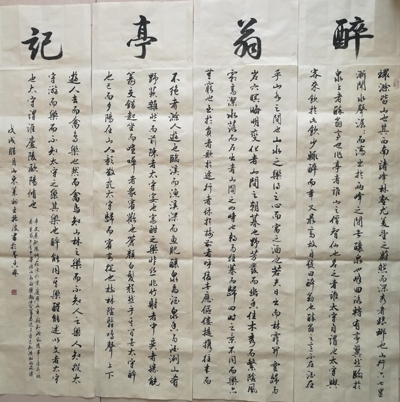 醉翁亭記
環滁皆山也其西南諸峰林壑尤美望之蔚然而深秀者琅琊也山行六七里
漸聞水聲潺潺而瀉出於兩峰之間者釀泉也峰回路轉有亭翼然臨於
泉上者醉翁亭也作亭者誰山之僧智仙也名之者誰太守自謂也太守與
客來飲於此飲少輒醉而年又最高故自號曰醉翁也醉翁之意不在酒在
乎山水之間也山水之樂得之心而寓之酒也若夫日出而林霏開雲歸而
岩穴暝晦明變化者山間之朝暮也野芳發而幽香佳木秀而繁陰風
霜高潔水落而石出者山間之四時也朝而往暮而歸四時之景不同而樂亦
無窮也至於負者歌於途行者休於樹前者呼後者應傴僂提攜往來而
不絕者滁人遊也臨溪而漁溪深而魚肥釀泉為酒泉香而酒洌山肴
野蔌雜然而前陳者太守宴也宴酣之樂非絲非竹射者中奕者勝觥
籌交錯起坐而喧嘩者衆賓歡也蒼顏白髮頹然乎其間者太守醉
也已而夕陽在山人影散亂太守歸而賓客從也樹林陰翳鳴聲上下
遊人去而禽鳥樂也然而禽鳥知山林之樂而不知人之樂人知從太
守遊而樂而不知太守之樂其樂也醉能同其樂醒能述以文者太守
也太守謂誰廬陵歐陽修也
戊戌